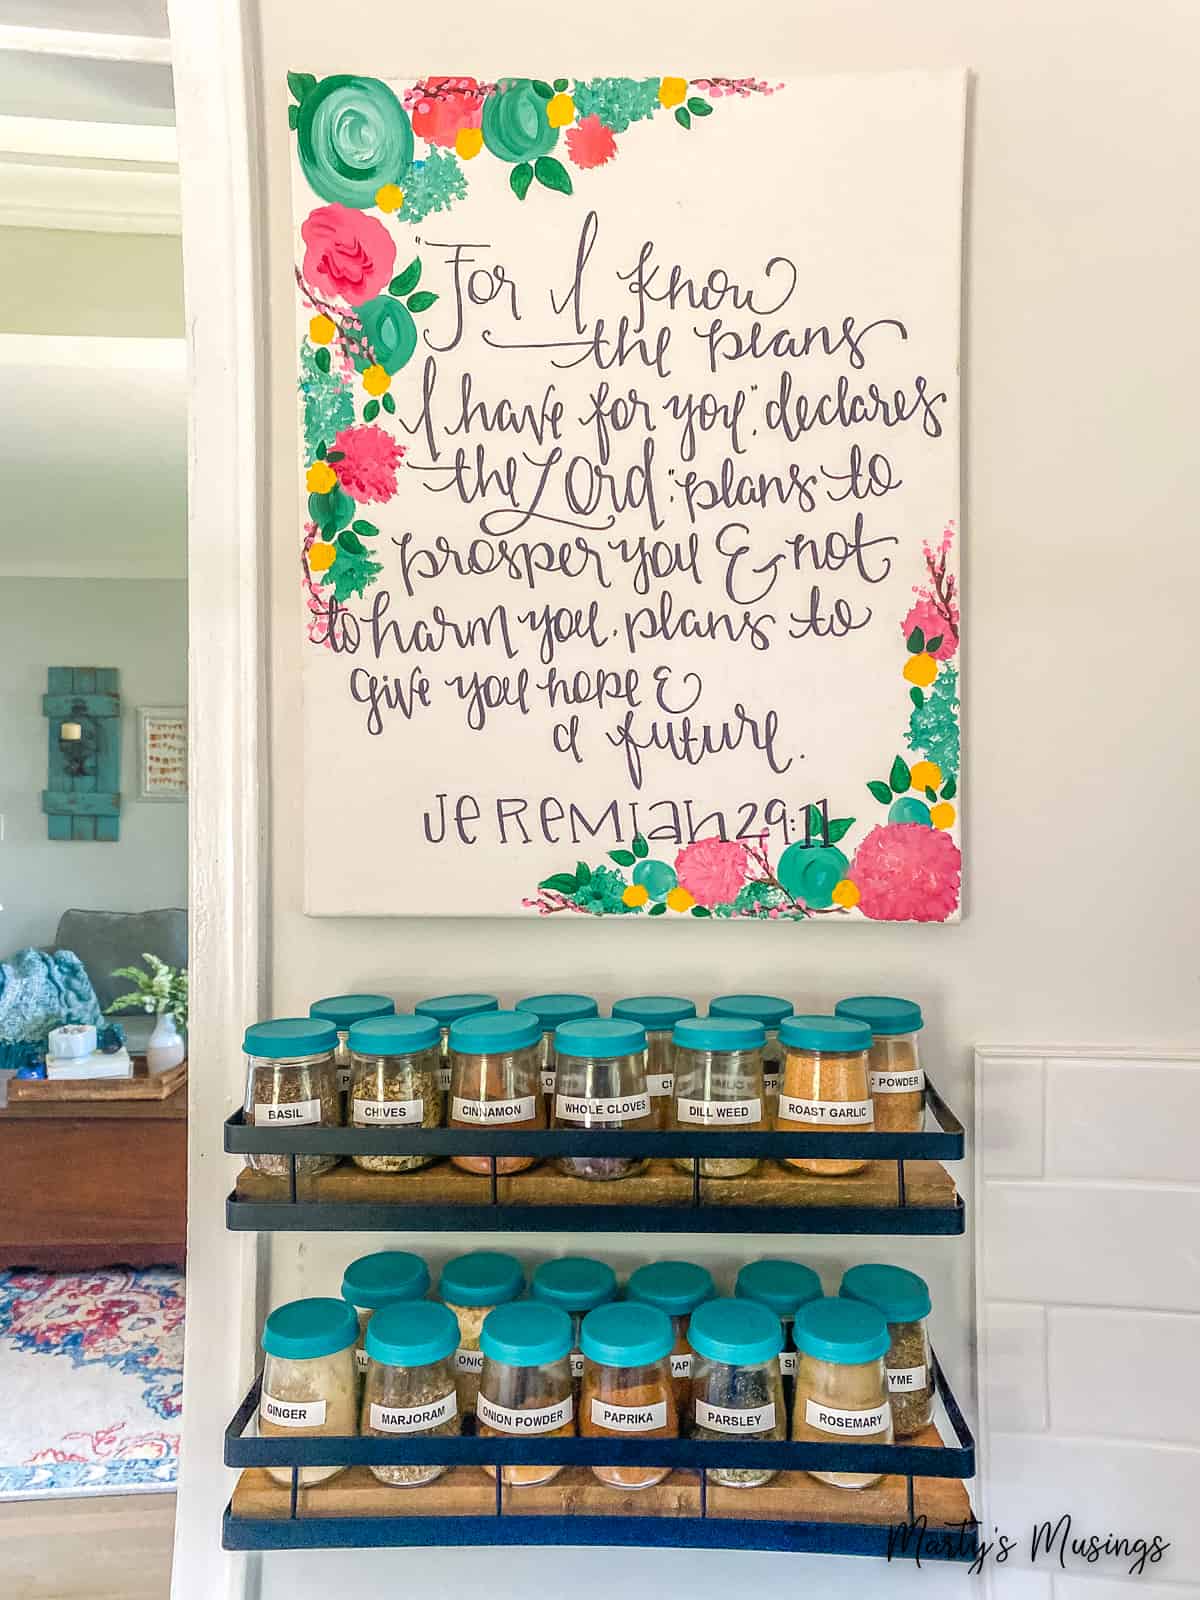 "For I know
the plans
I have for you," declares
the Lord, "plans to
prosper you & not
to harm you, plans to
give you hope &
a future.
Jeremiah 29:11
C POWDER
BASIL
CHIVES
CINNAMON
WHOLE CLOVES
DILL WEED
ROAST GARLIC
YME
GINGER
MARJORAM
ONION POWDER
PAPRIKA
PARSLEY
ROSEMARY
Marty's Musings